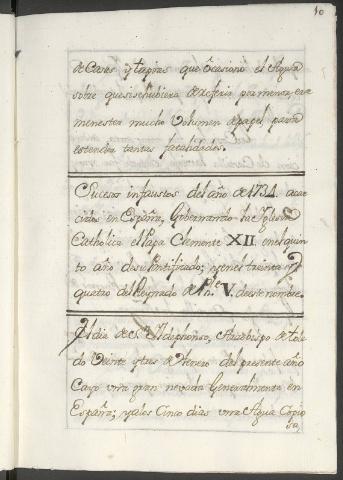 10
de Casas y tapias que ôcasionó el Agua
sobre que si se hubiera de referir por menor, era
menester mucho Volumen de papel para
estender tantas fatalidades.
Sucesos infaustos del año de 1734. acae
cidos en España, Gobernando la Iglesia
Catholica el Papa Clemente XII. en el quin
to año de su Pontificado; y en el treinta y
quatro del Reynado de Phe. V. de este nombre.
El dia de Sn. Ildephonso, Arzobispo de Tole
do Veinte y tres de Henero del presente año
Cayó una gran nevada Generalmente en
España; y a los Cinco dias una Agua Copio
sa,